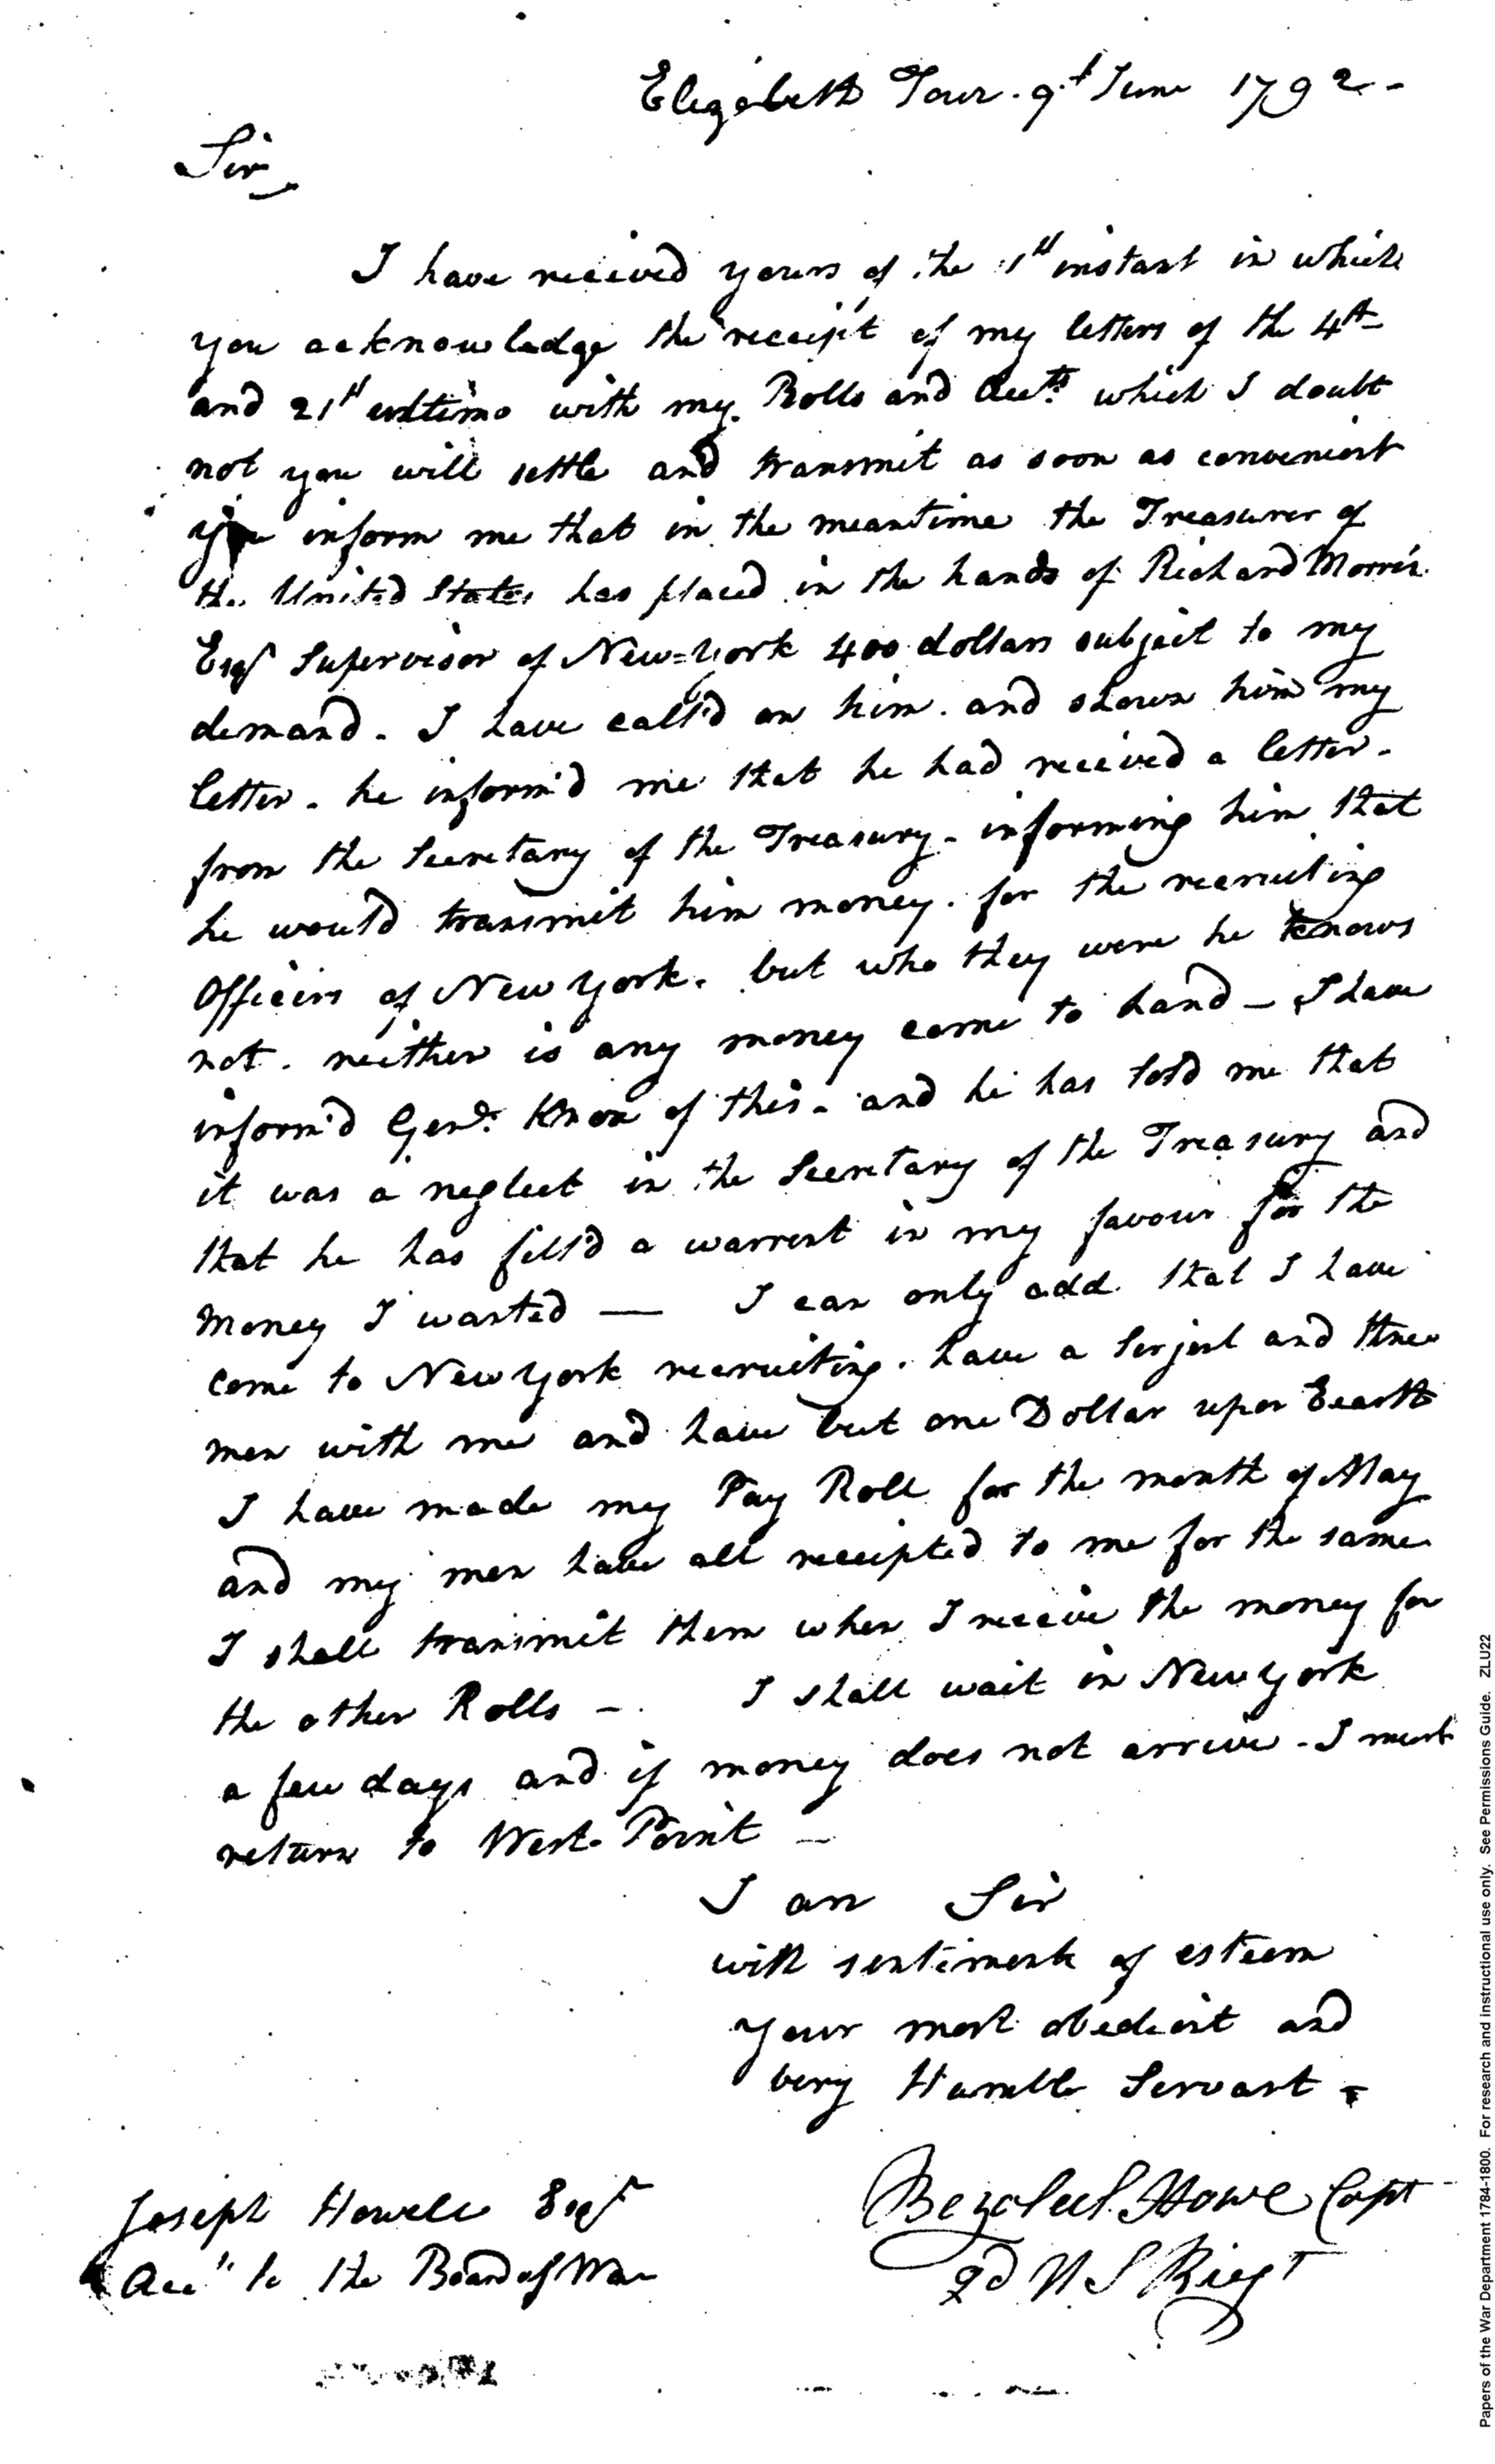 Elizabeth Town. 9.t June 1792-
Sir
I have received yours of the 1st instant in which
you acknowledge the receipt of my letters of the 4th
and 21st ultimo with my Rolls and Accts. which I doubt
not you will settle and transmit as soon as convenient
you inform me that in the meantime the Treasurer of
the United States has placed in the hands of Richard Morris
Esqr Supervisor of New=York 400 dollars subject to my
demand. I have call'd on him. and shown him my
letter. he inform'd me that he had received a letter.
from the Secretary of the Treasury - informing him that
he would transmit him money. for the recruiting
Officers of New York. but who they were he knows
not. neither is any money come to hand - I have
inform'd Genl. Knox of this. and he has told me that
it was a neglect in the Secretary of the Treasury and
that he has fill'd a warrent in my favour for the
money I wanted — I can only add that I have
come to New York recruiting. have a Serjent and three
men with me and have but one Dollar upon Eearth
I have made my Pay Roll for the month of May
and my men have all receipted to me for the same
I shall transmit them when I receive the money for
the other Rolls - I shall wait in New York
a few days and if money does not arrive - I must
return to West-Point —
I am Sir
with sentiments of esteem
your most obedient and
very Humble Servant
Bezaleel Howe Capt
2d U S Regt
Joseph Howell Esqr
Acct to the Board of War
Papers of the War Department 1784-1800. For research and instructional use only. See Permissions Guide. ZLU22